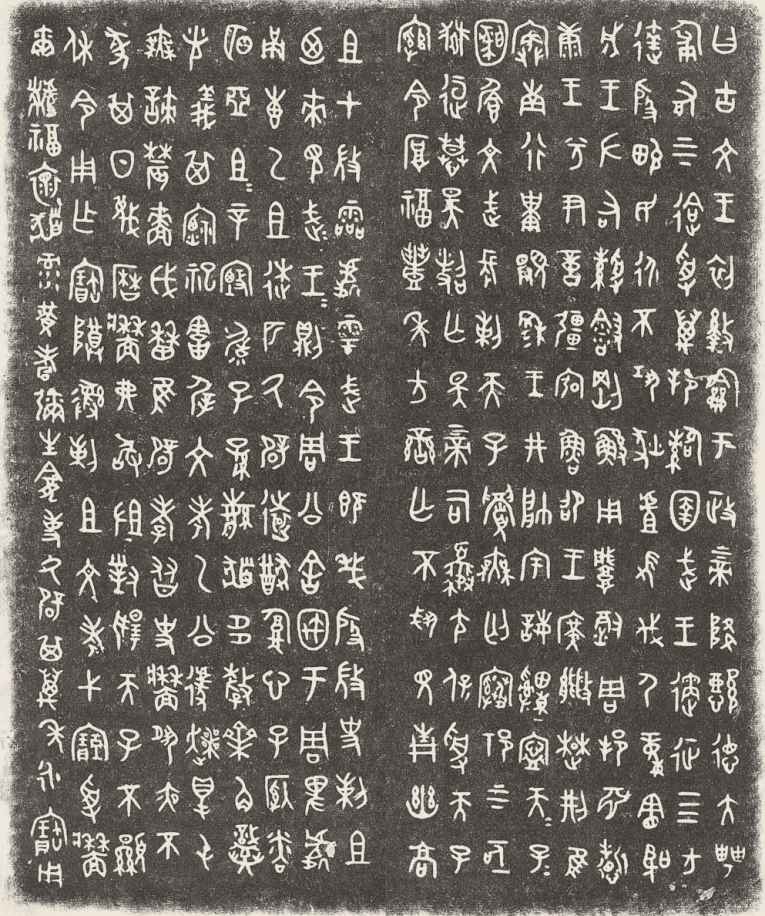 曰古文王初𢿌龢于政上帝降懿德大甹
匍有上下迨受萬邦䚄圉武王遹征四方
達殷畯民永不巩狄虘髟伐尸童憲聖
成王左右綬䋣剛鯀用肇徹周邦淵哲
康王兮尹億疆弘魯卲王廣㪤楚荊隹
寏南行祗覭穆王井帥宇誨申寧天子
圂䞌文武長剌天子眉無匄𥩓示上下亟
獄趄慕昊照亡斁上帝司夒尢保受天子
綰令厚福豐年方蠻亡不䚄見青幽高
且才微靈處雩武王既𢦏殷微史剌且
迺來見武王則令周公舍國于周卑處
甬惠乙且逑匹厥辟遠猷腹心子𠩵粦
明亞且辛甄毓子孫繁髮多釐齊角熾
光義其禋祀害犀文考乙公遽爽得屯
無諫農穡戉曆隹辟孝友史墻夙夜不
彖其日蔑曆墻弗敢沮對揚天子不顯
休令用乍寶尊彝剌且文考弋寶受墻
爾黼福懷髮录黃耇彌生龕事厥辟其萬年永寶用